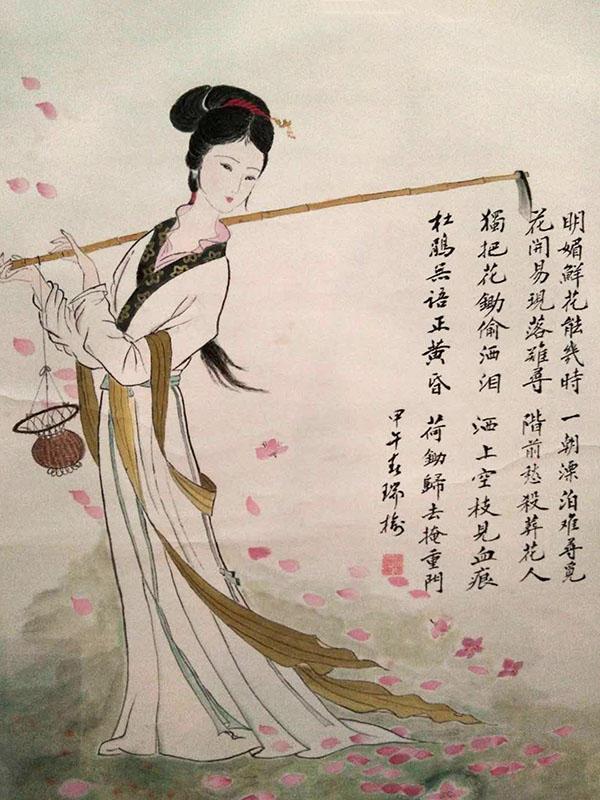 明媚鮮花能幾時 一朝漂泊难尋覓
花開易現落難尋 階前愁殺葬花人
獨把花鋤偷洒泪 洒上空枝見血痕
杜鵑無語正黃昏 荷鋤歸去掩重門
甲午春瑞